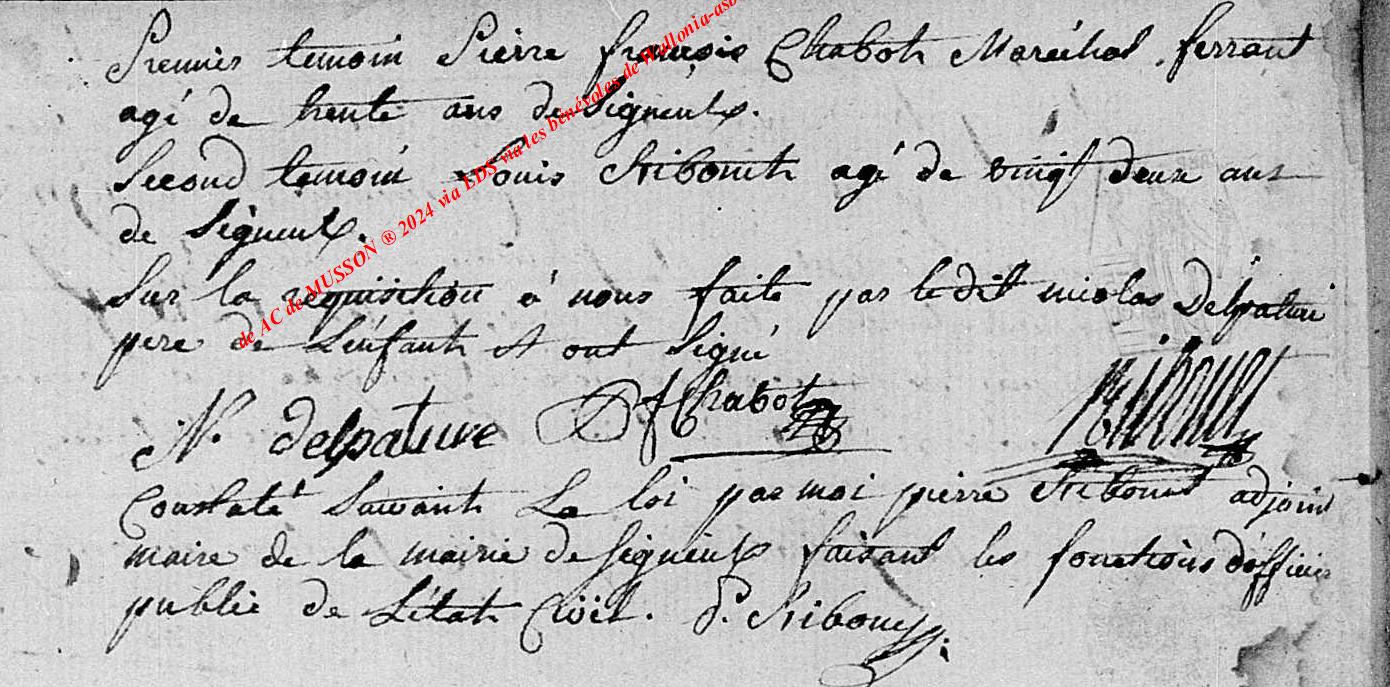 Premier temoin Pierre françois Chabot Maréchal ferrant
agé de trente ans de Signeulx.
Second temoin Louis Ribonet agé de vingt deux ans
de Signeulx.
Sur la requisition à nous faite par le dit nicolas Delpature
pere de L'enfant et ont Signé
N. delpature fChabot Ribonet
Constaté Suivant La loi par moi pierre Ribonet adjoint
maire de la mairie de Signeulx faisant les fonctions d'officier
public de L'état Civil. P. Ribonet
de AC de MUSSON ® 2024 via EDS via les bénévoles de Wallonia-asb